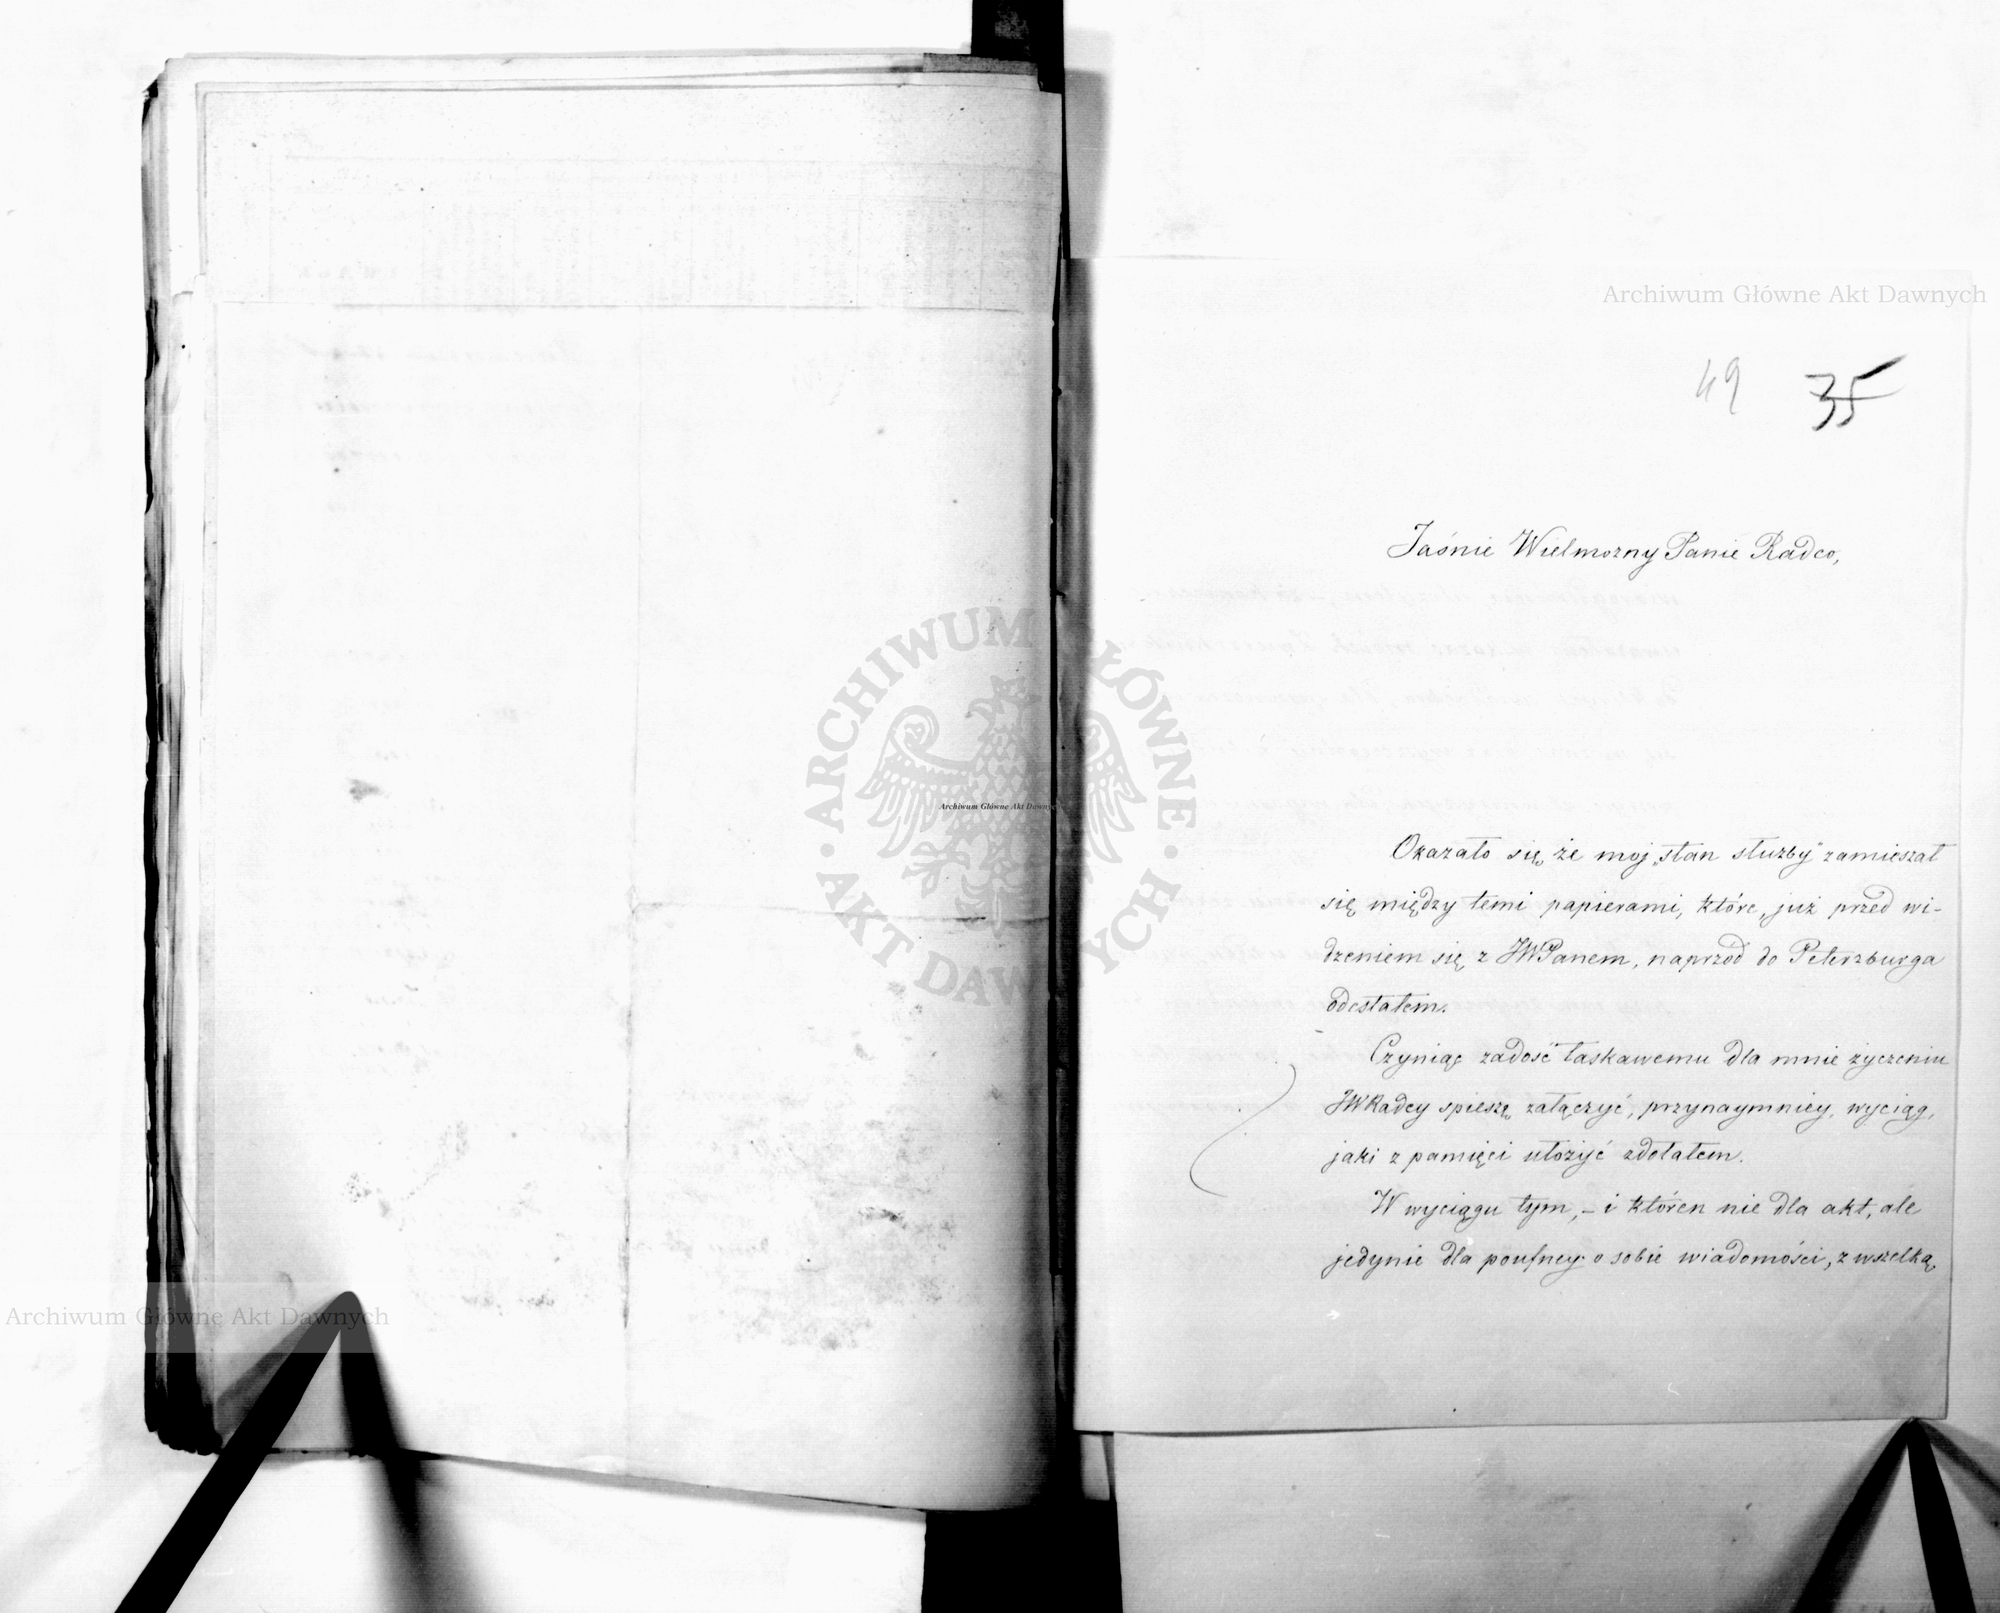 Archiwum Główne Akt Dawnych
49 35
Jaśnie Wielmożny Panie Radco,
Okazało się, że moj „stan służby" zamieszał
się między temi papierami, które, już przed wi-
dzeniem się z JWPanem, naprzód do Petersburga
odesłałem.
Czyniąc zadość łaskawemu dla mnie życzeniu
JWRadcy spieszę załączyć, przynaymniey, wyciąg,
jaki z pamięci ułożyć zdołałem.
W wyciągu tym, – i któren nie dla akt, ale
jedynie dla poufney o sobie wiadomości, z wszelką
ARCHIWUM GŁÓWNE AKT DAWNYCH
Archiwum Główne Akt Dawnych
Archiwum Główne Akt Dawnych